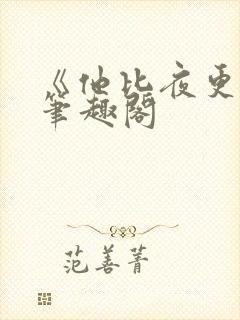 《他比夜更
筆趣閣
范善菁